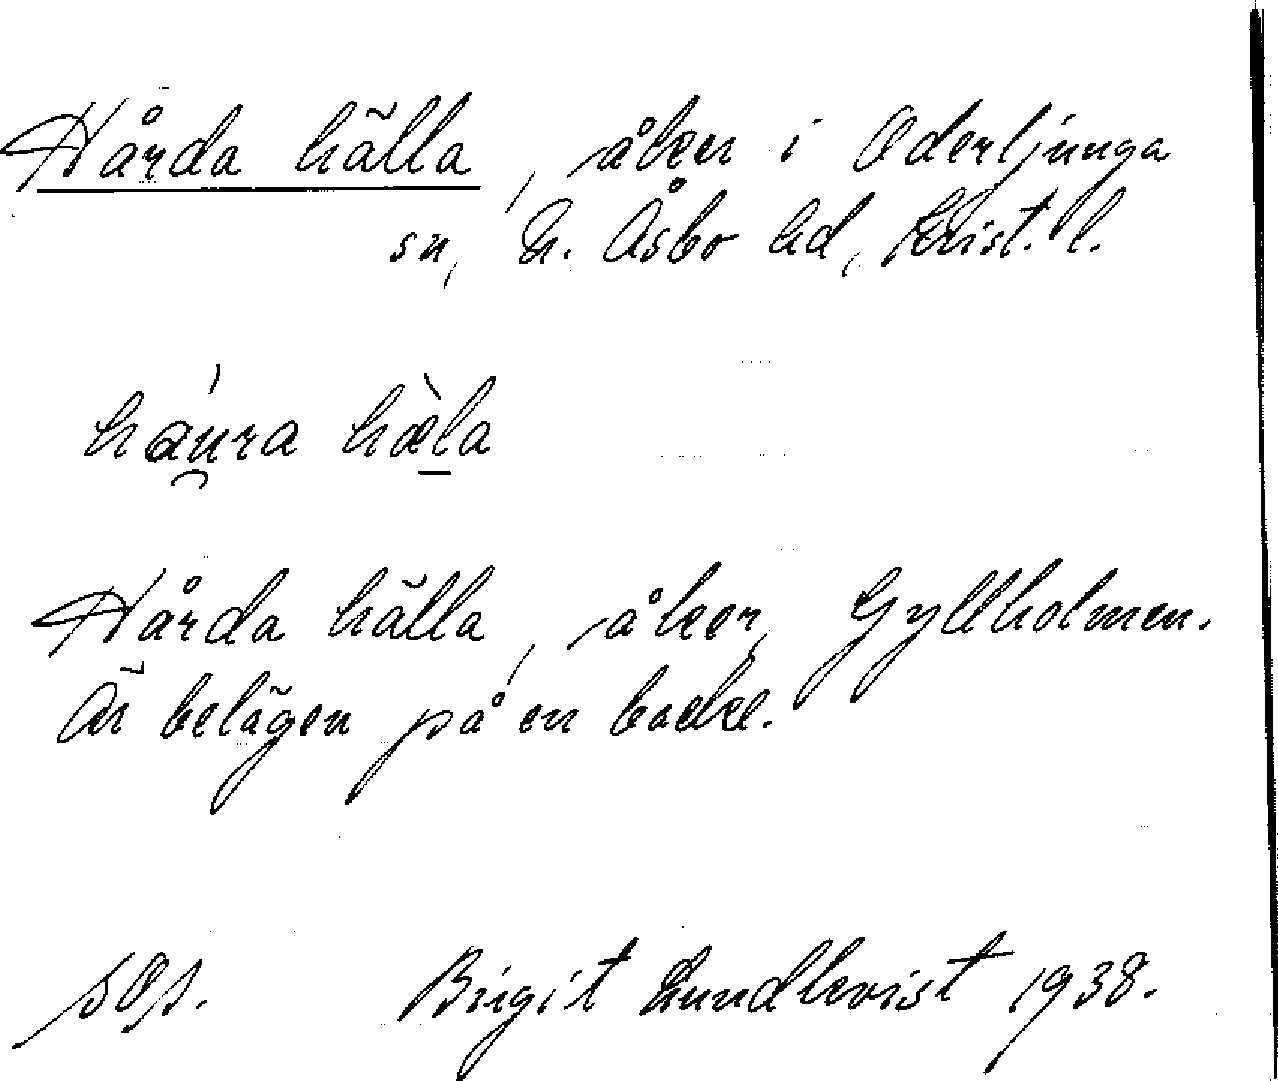 Hårda hälla, åker i Oderljunga
sn, N. Åsbo hd, Krist. l.
háu̯ra hæ̀l̲a
Hårda hälla, åker, Gyllholmen.
Är belägen på en backe.
Birgit Lundkvist 1938.